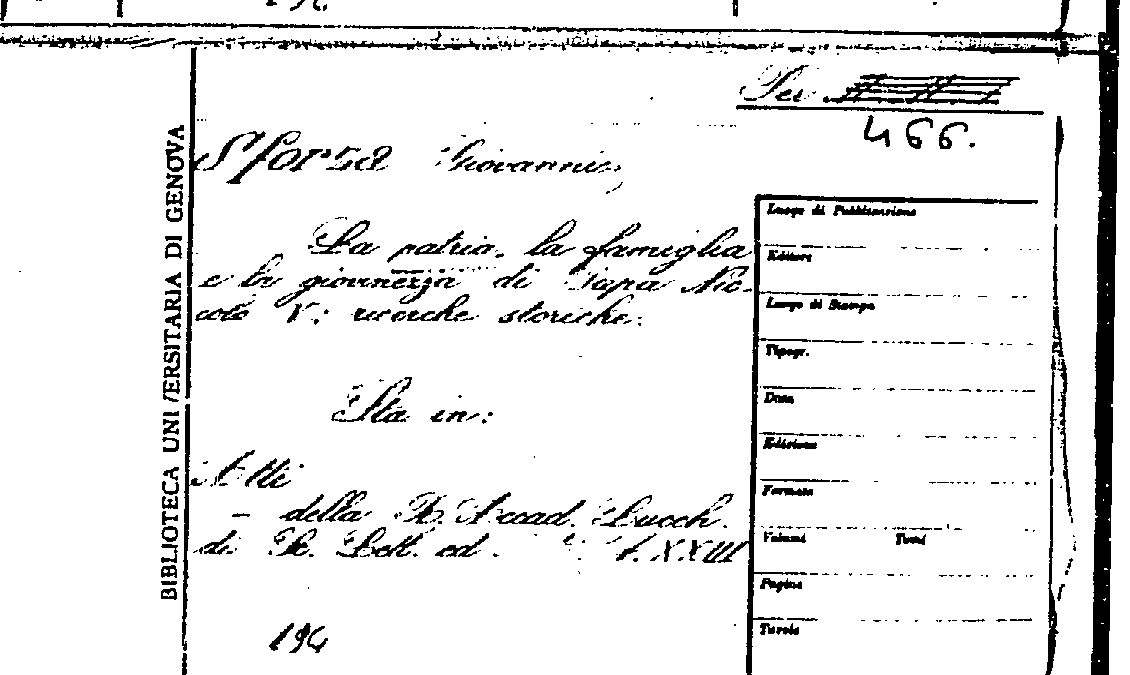 Per
466.
BIBLIOTECA UNIVERSITARIA DI GENOVA
Sforza Giovanni
La patria, la famiglia
e la giovinezza di Papa Nic-
colò V: ricerche storiche.
Sta in:
Atti
- della R. Accad. Lucch.
di Sc. Lett. ed t. XXIII
194
Luogo di Pubblicazione
Editore
Luogo di Stampa
Tipogr.
Data
Edizione
Formato
Volumi Tomi
Pagine
Tavole